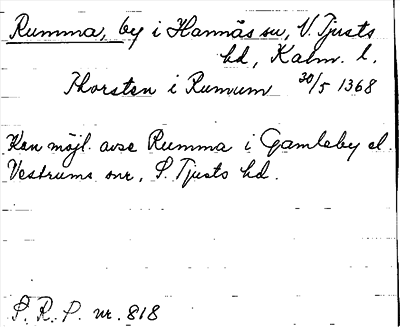 Rumma, by i Hannäs sn, V. Tjusts
hd, Kalm. l.
Thorsten i Rumum 30/5 1368
Kan möjl. avse Rumma i Gamleby el.
Vestrums snr, S. Tjusts hd.
S. R. P. nr. 818